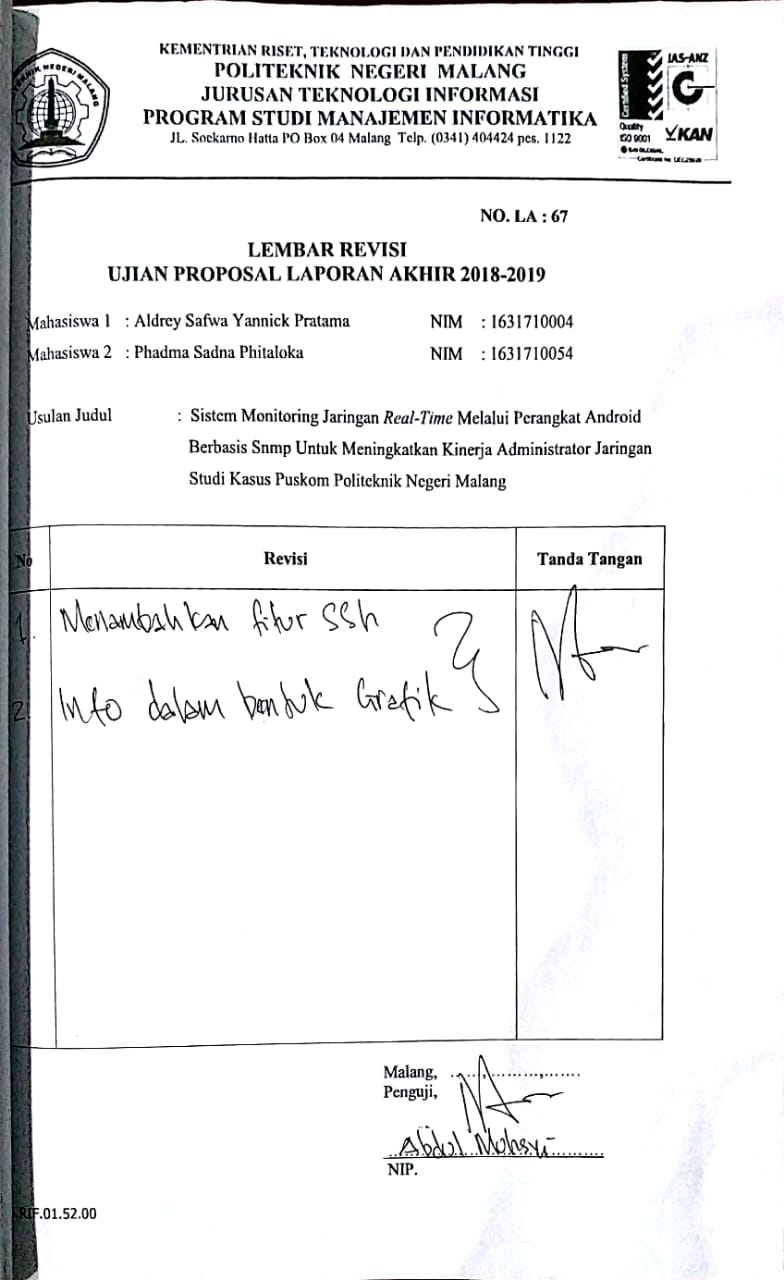 KEMENTRIAN RISET, TEKNOLOGI DAN PENDIDIKAN TINGGI
POLITEKNIK NEGERI MALANG
JURUSAN TEKNOLOGI INFORMASI
PROGRAM STUDI MANAJEMEN INFORMATIKA
JL. Soekarno Hatta PO Box 04 Malang Telp. (0341) 404424 pes. 1122
JAS-ANZ
Certified System
Quality
ISO 9001
KAN
NO. LA : 67
LEMBAR REVISI
UJIAN PROPOSAL LAPORAN AKHIR 2018-2019
Mahasiswa 1 : Aldrey Safwa Yannick Pratama NIM : 1631710004
Mahasiswa 2 : Phadma Sadna Phitaloka NIM : 1631710054
Usulan Judul : Sistem Monitoring Jaringan Real-Time Melalui Perangkat Android
Berbasis Snmp Untuk Meningkatkan Kinerja Administrator Jaringan
Studi Kasus Puskom Politeknik Negeri Malang
No Revisi Tanda Tangan
1. Menambahkan fitur SSh
2. Info dalam bentuk Grafik
Malang, ..........,........
Penguji,
Abdul Muhsyi
NIP.
RIF.01.52.00